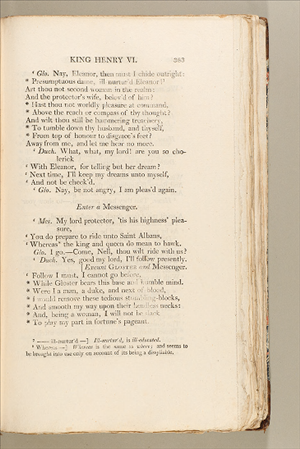 KING HENRY VI. 303
' Glo. Nay, Eleanor, then must I chide outright:
* Presumptuous dame, ill-nurtur'd Eleanor!
Art thou not second woman in the realm;
And the protector's wife, belov'd of him?
* Hast thou not worldly pleasure at command,
* Above the reach or compass of thy thought?
And wilt thou still be hammering treachery,
* To tumble down thy husband, and thyself,
* From top of honour to disgrace's feet?
Away from me, and let me hear no more.
' Duch. What, what, my lord! are you so cho-
lerick
' With Eleanor, for telling but her dream?
' Next time, I'll keep my dreams unto myself,
' And not be check'd.
' Glo. Nay, be not angry, I am pleas'd again.
Enter a Messenger.
' Mes. My lord protector, 'tis his highness' plea-
sure,
' You do prepare to ride unto Saint Albans,
' Whereas the king and queen do mean to hawk.
Glo. I go.—Come, Nell, thou wilt ride with us?
' Duch. Yes, good my lord, I'll follow presently.
Exeunt GLOSTER and Messenger.
' Follow I must, I cannot go before,
* While Gloster bears this base and humble mind.
* Were I a man, a duke, and next of blood,
* I would remove these tedious stumbling-blocks,
* And smooth my way upon their headless necks:
* And, being a woman, I will not be slack
* To play my part in fortune's pageant.
—— ill-nurtur'd —] Ill-nurtur'd, is ill-educated.
Whereas —] Whereas is the same as where; and seems to
be brought into use only on account of its being a dissyllable.